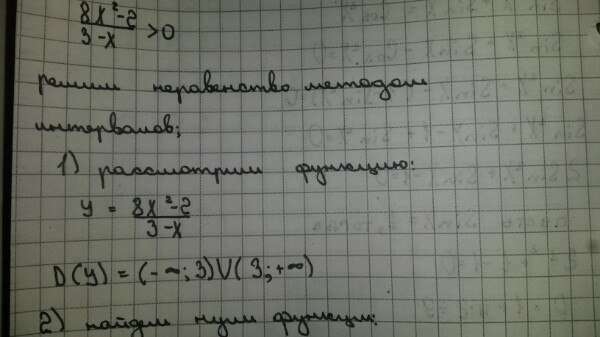 8x²-2 / 3-x >0
решим неравенство методом
интервалов;
1) рассмотрим функцию:
y = 8x²-2 / 3-x
D(y) = (-∞; 3)∪(3; +∞)
2) найдем нули функции: